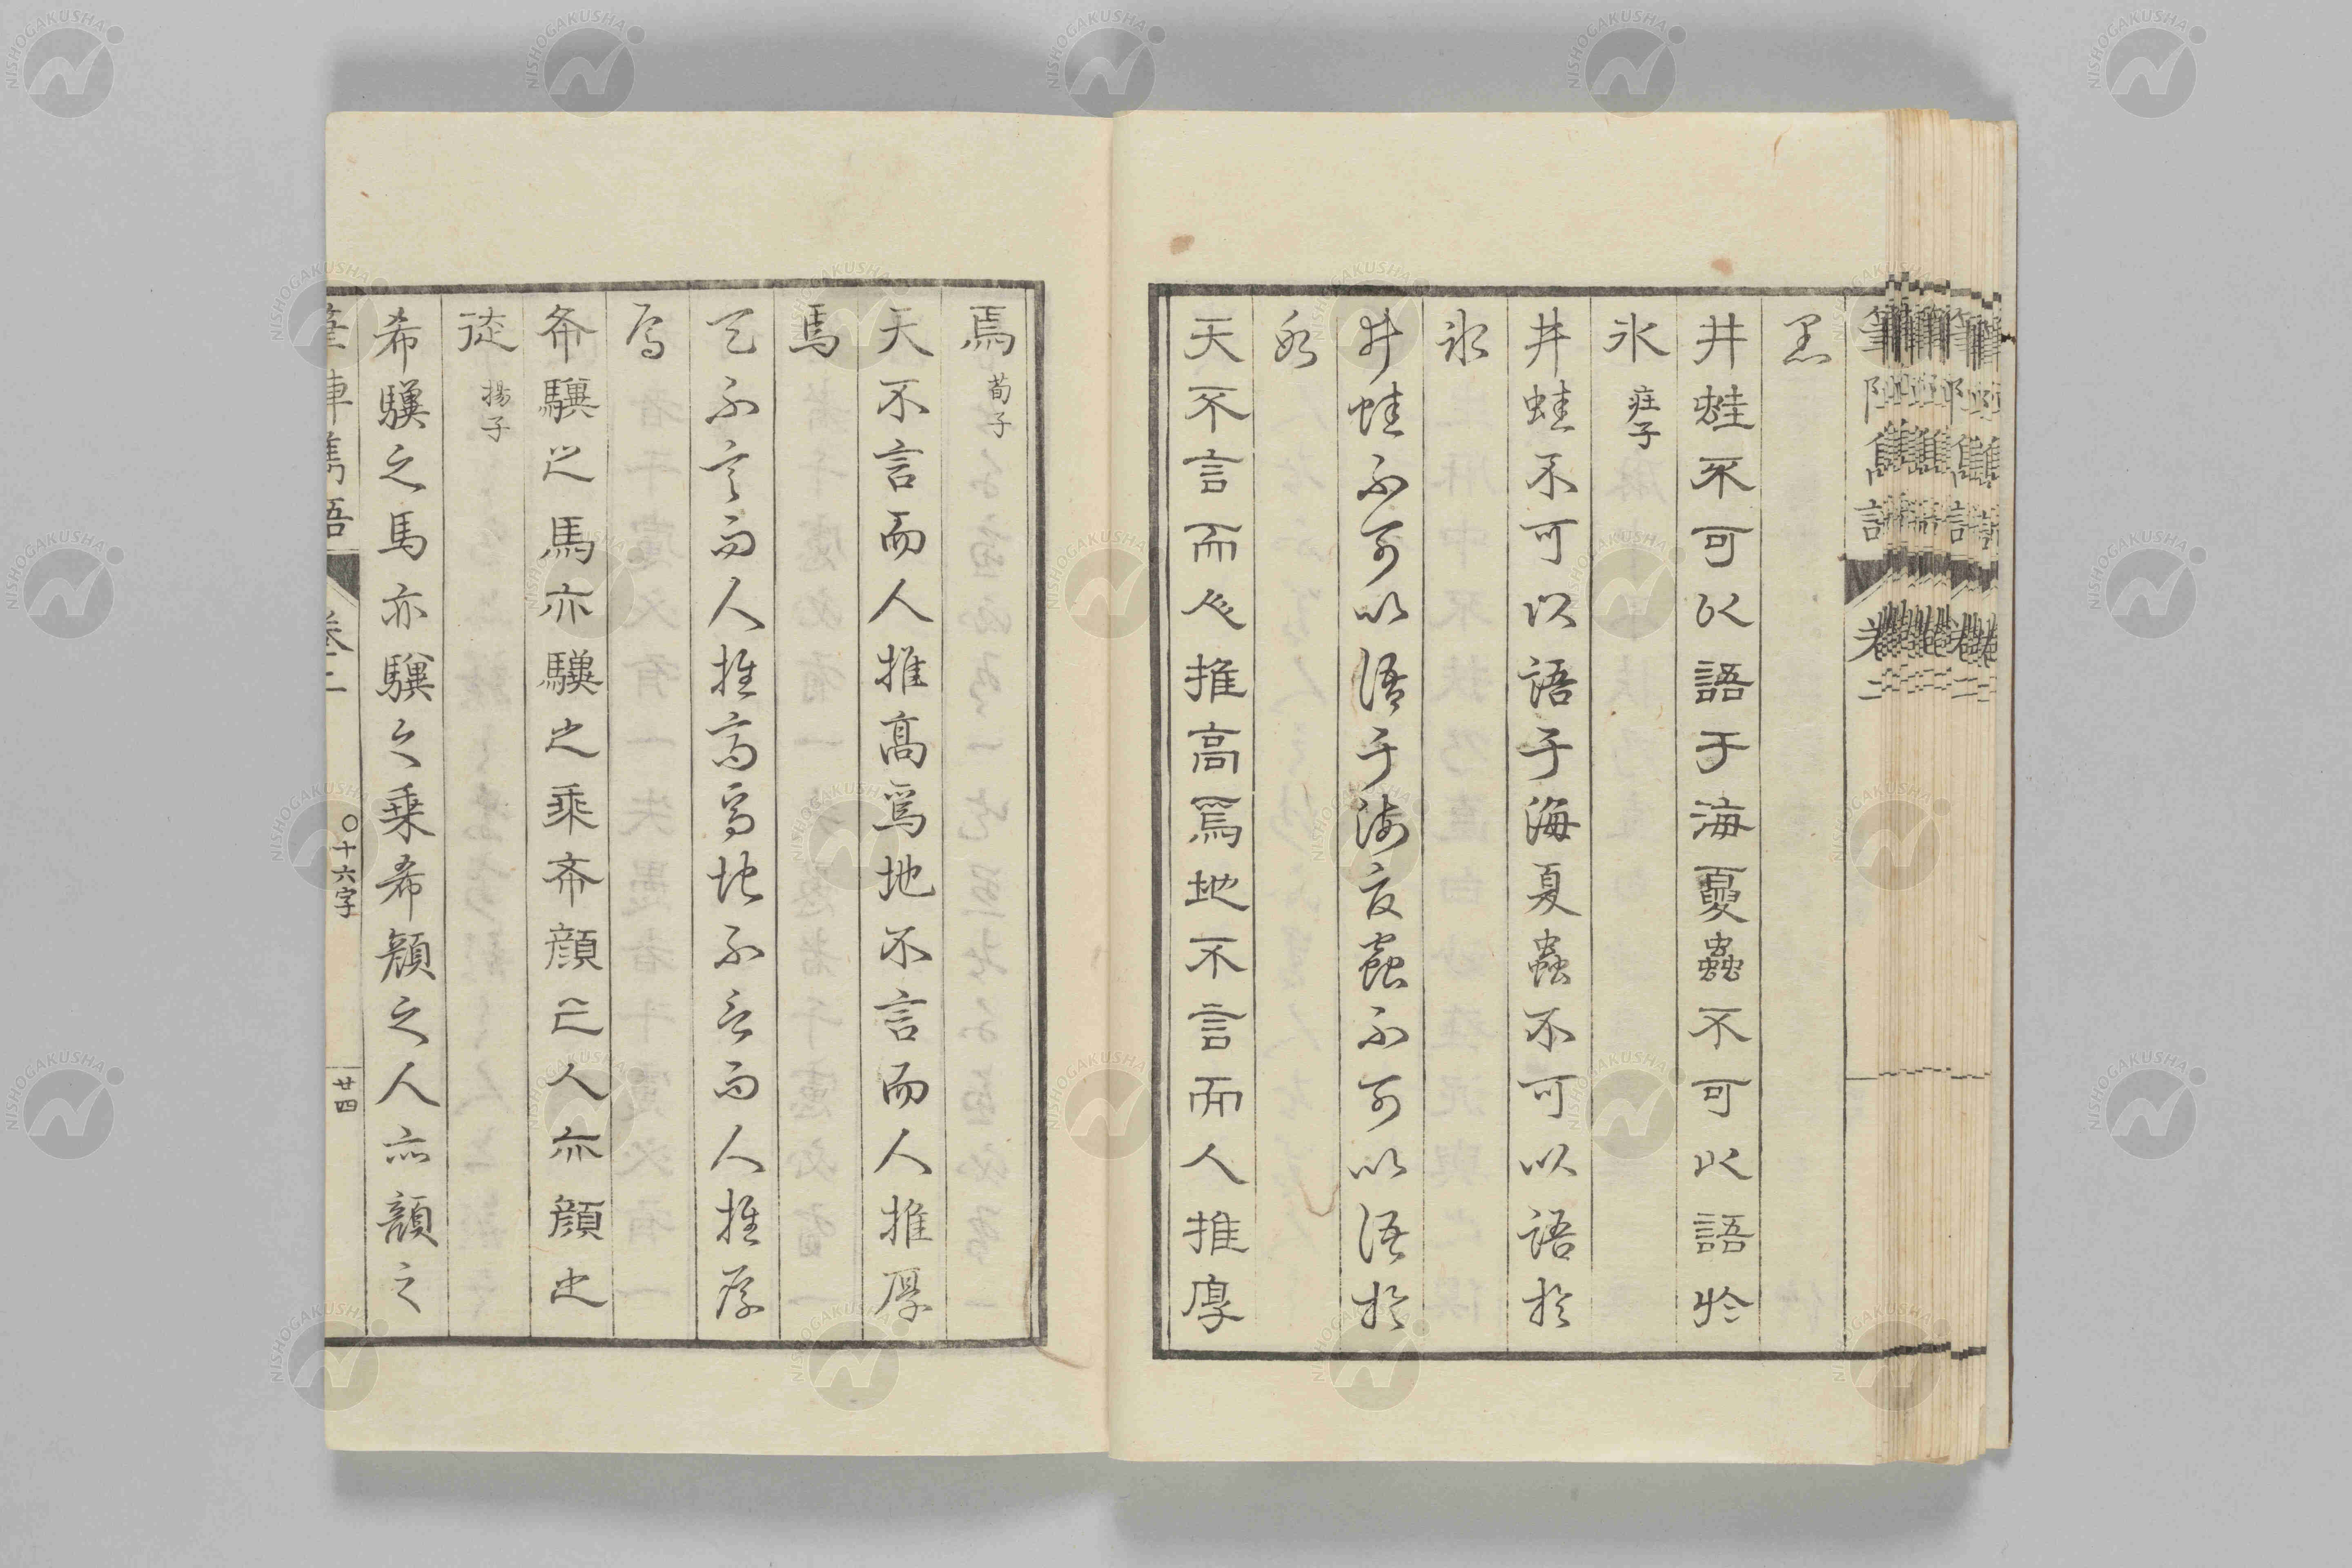 黑
井蛙不可以語于海夏蟲不可以語於
氷 莊子
井蛙不可以語于海夏蟲不可以語於
氷
井蛙不可以語于海夏蟲不可以語於
氷
天不言而人推高焉地不言而人推厚
焉 荀子
天不言而人推高焉地不言而人推厚
焉
天不言而人推高焉地不言而人推厚
焉
希驥之馬亦驥之乘希顏之人亦顏之
徒 揚子
希驥之馬亦驥之乘希顏之人亦顏之
筆陣雋語 卷二 ○十六字 廿四
NISHOGAKUSHA